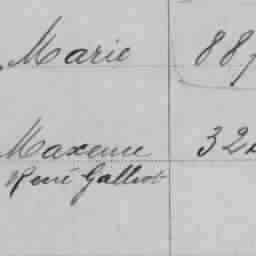 Marie 887
Maxence 32
René Galliot